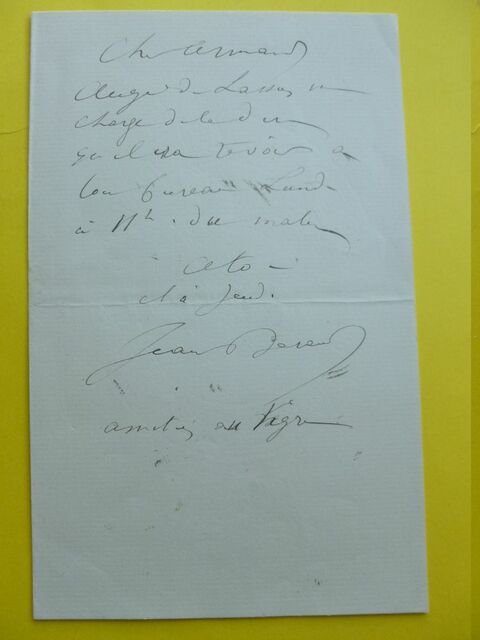 Cher Armand
Auguste de Lassus me
charge de te dire
qu'il ira te voir à
ton bureau Lundi
à 11h. du matin
à toi
et à Jeudi.
Jean Béraud
amitiés au Tigre